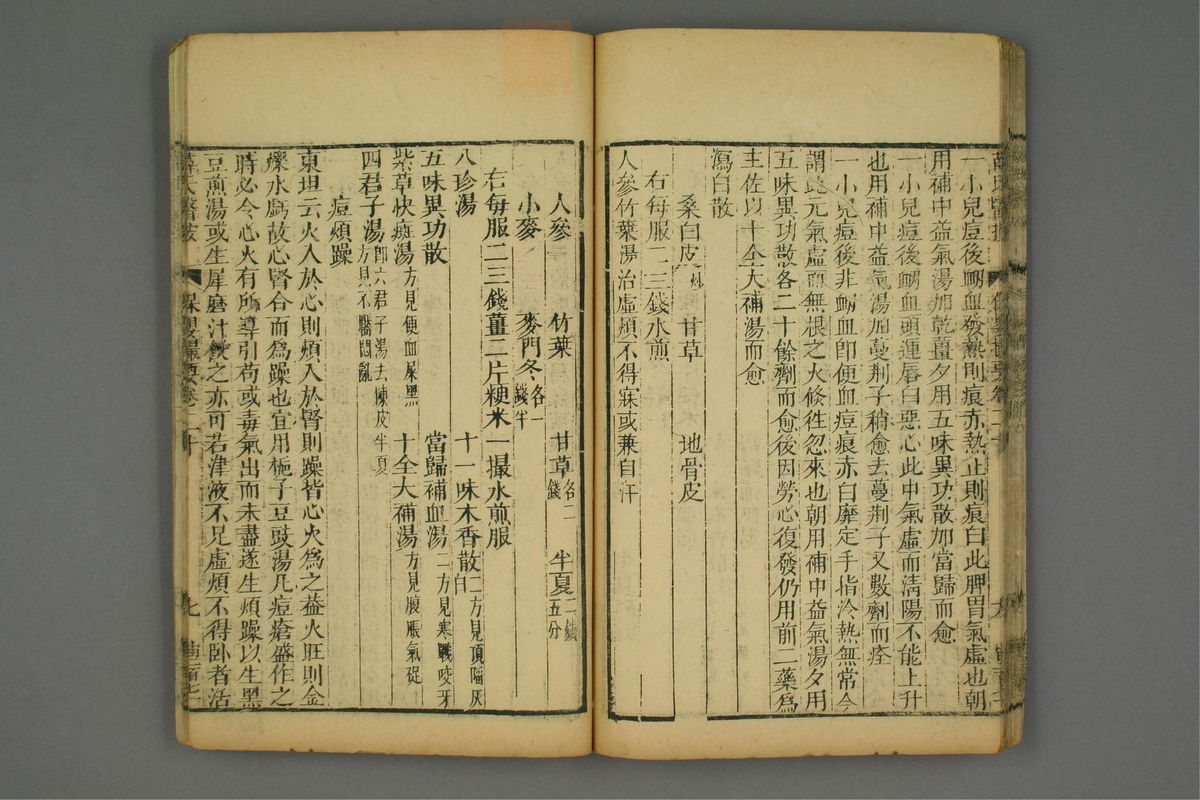 一小兒痘後衂血發熱則痕赤熱止則痕白此脾胃氣虛也朝
用補中益氣湯加乾薑夕用五味異功散加當歸而愈
一小兒痘後衂血頭運唇白惡心此中氣虛而清陽不能上升
也用補中益氣湯加蔓荆子稍愈去蔓荆子又數劑而痊
一小兒痘後非衂血卽便血痘痕赤白靡定手指冷熱無常余
謂此元氣虛而無根之火倏徃忽來也朝用補中益氣湯夕用
五味異功散各二十餘劑而愈後因勞心復發仍用前二藥爲
主佐以十全大補湯而愈
瀉白散
桑白皮炒 甘草 地骨皮
右每服一二錢水煎
人參竹葉湯治虛煩不得寐或兼自汗
人參 竹葉 甘草各二錢 半夏二錢五分
小麥 麥門冬各一錢半
右每服二三錢薑二片粳米一撮水煎服
八珍湯 十一味木香散二方見頂陷灰白
五味異功散 當歸補血湯二方見寒戰咬牙
紫草快斑湯方見便血屎黑 十全大補湯方見腹脹氣促
四君子湯卽六君子湯去陳皮半夏方見不醫悶亂
痘煩躁
東垣云火入於心則煩入於腎則躁皆心火爲之葢火旺則金
爍水虧故心腎合而爲躁也宜用梔子豆豉湯凡痘瘡盛作之
時必令心火有所導引苟或毒氣出而未盡遂生煩躁以生黑
豆煎湯或生犀磨汁飲之亦可若津液不足虛煩不得卧者活
薛氏醫按 保嬰撮要卷二十 七